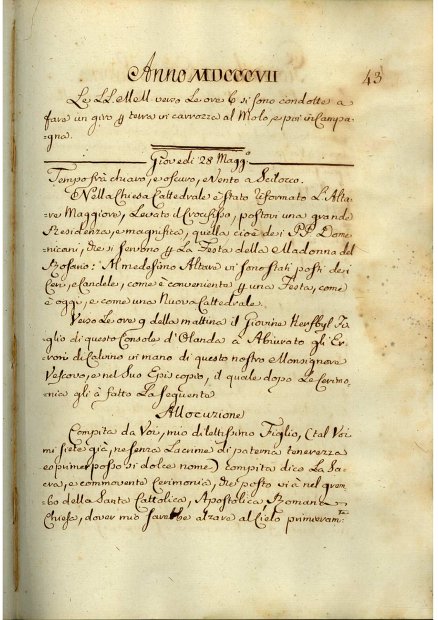 Anno MDCCCVII 43
Le LL. MM. verso Le ore 6 si sono condotte a
fare un giro p terra in carrozza al Molo, e poi in Campa=
=gna.
Giovedì 28 Magg.o
Tempo frà chiaro, e oscuro, e Vento a Scilocco.
Nella Chiesa Cattedrale è stato riformato L'Alta=
=re Maggiore, Levato il Crocifisso, postovi una grande
Residenza, e magnifica, quella cioè dei PP. Dome=
=nicani, che si servono p La Festa della Madonna del
Rosario: Al medesimo Altare vi sono stati posti dei
Ceri, e Candele, come è conveniente p una Festa, come
è oggi, e come una Nuova Cattedrale.
Verso Le ore 9 della mattina il Giovine Fi=
=glio di questo Console d'Olanda à Abiurato gli Er=
=rori di Calvino in mano di questo nostro Monsignore
Vescovo, e nel Suo Episcopio, il quale dopo Le Cerimo=
=nia gli à fatto La seguente
Allocuzione
Compita da Voi, mio dilettissimo Figlio, (tal Voi
mi siete già, ne senza Lacrime di paterna tenerezza
eo primer posso sì dolce nome) compita dico La Sa=
=cra, e commovente Cerimonia, che posto vi à nel grem=
=bo della Santa Cattolica, Apostolica, Romana
Chiesa, dover mio sarebbe alzare al Cielo primieram.te